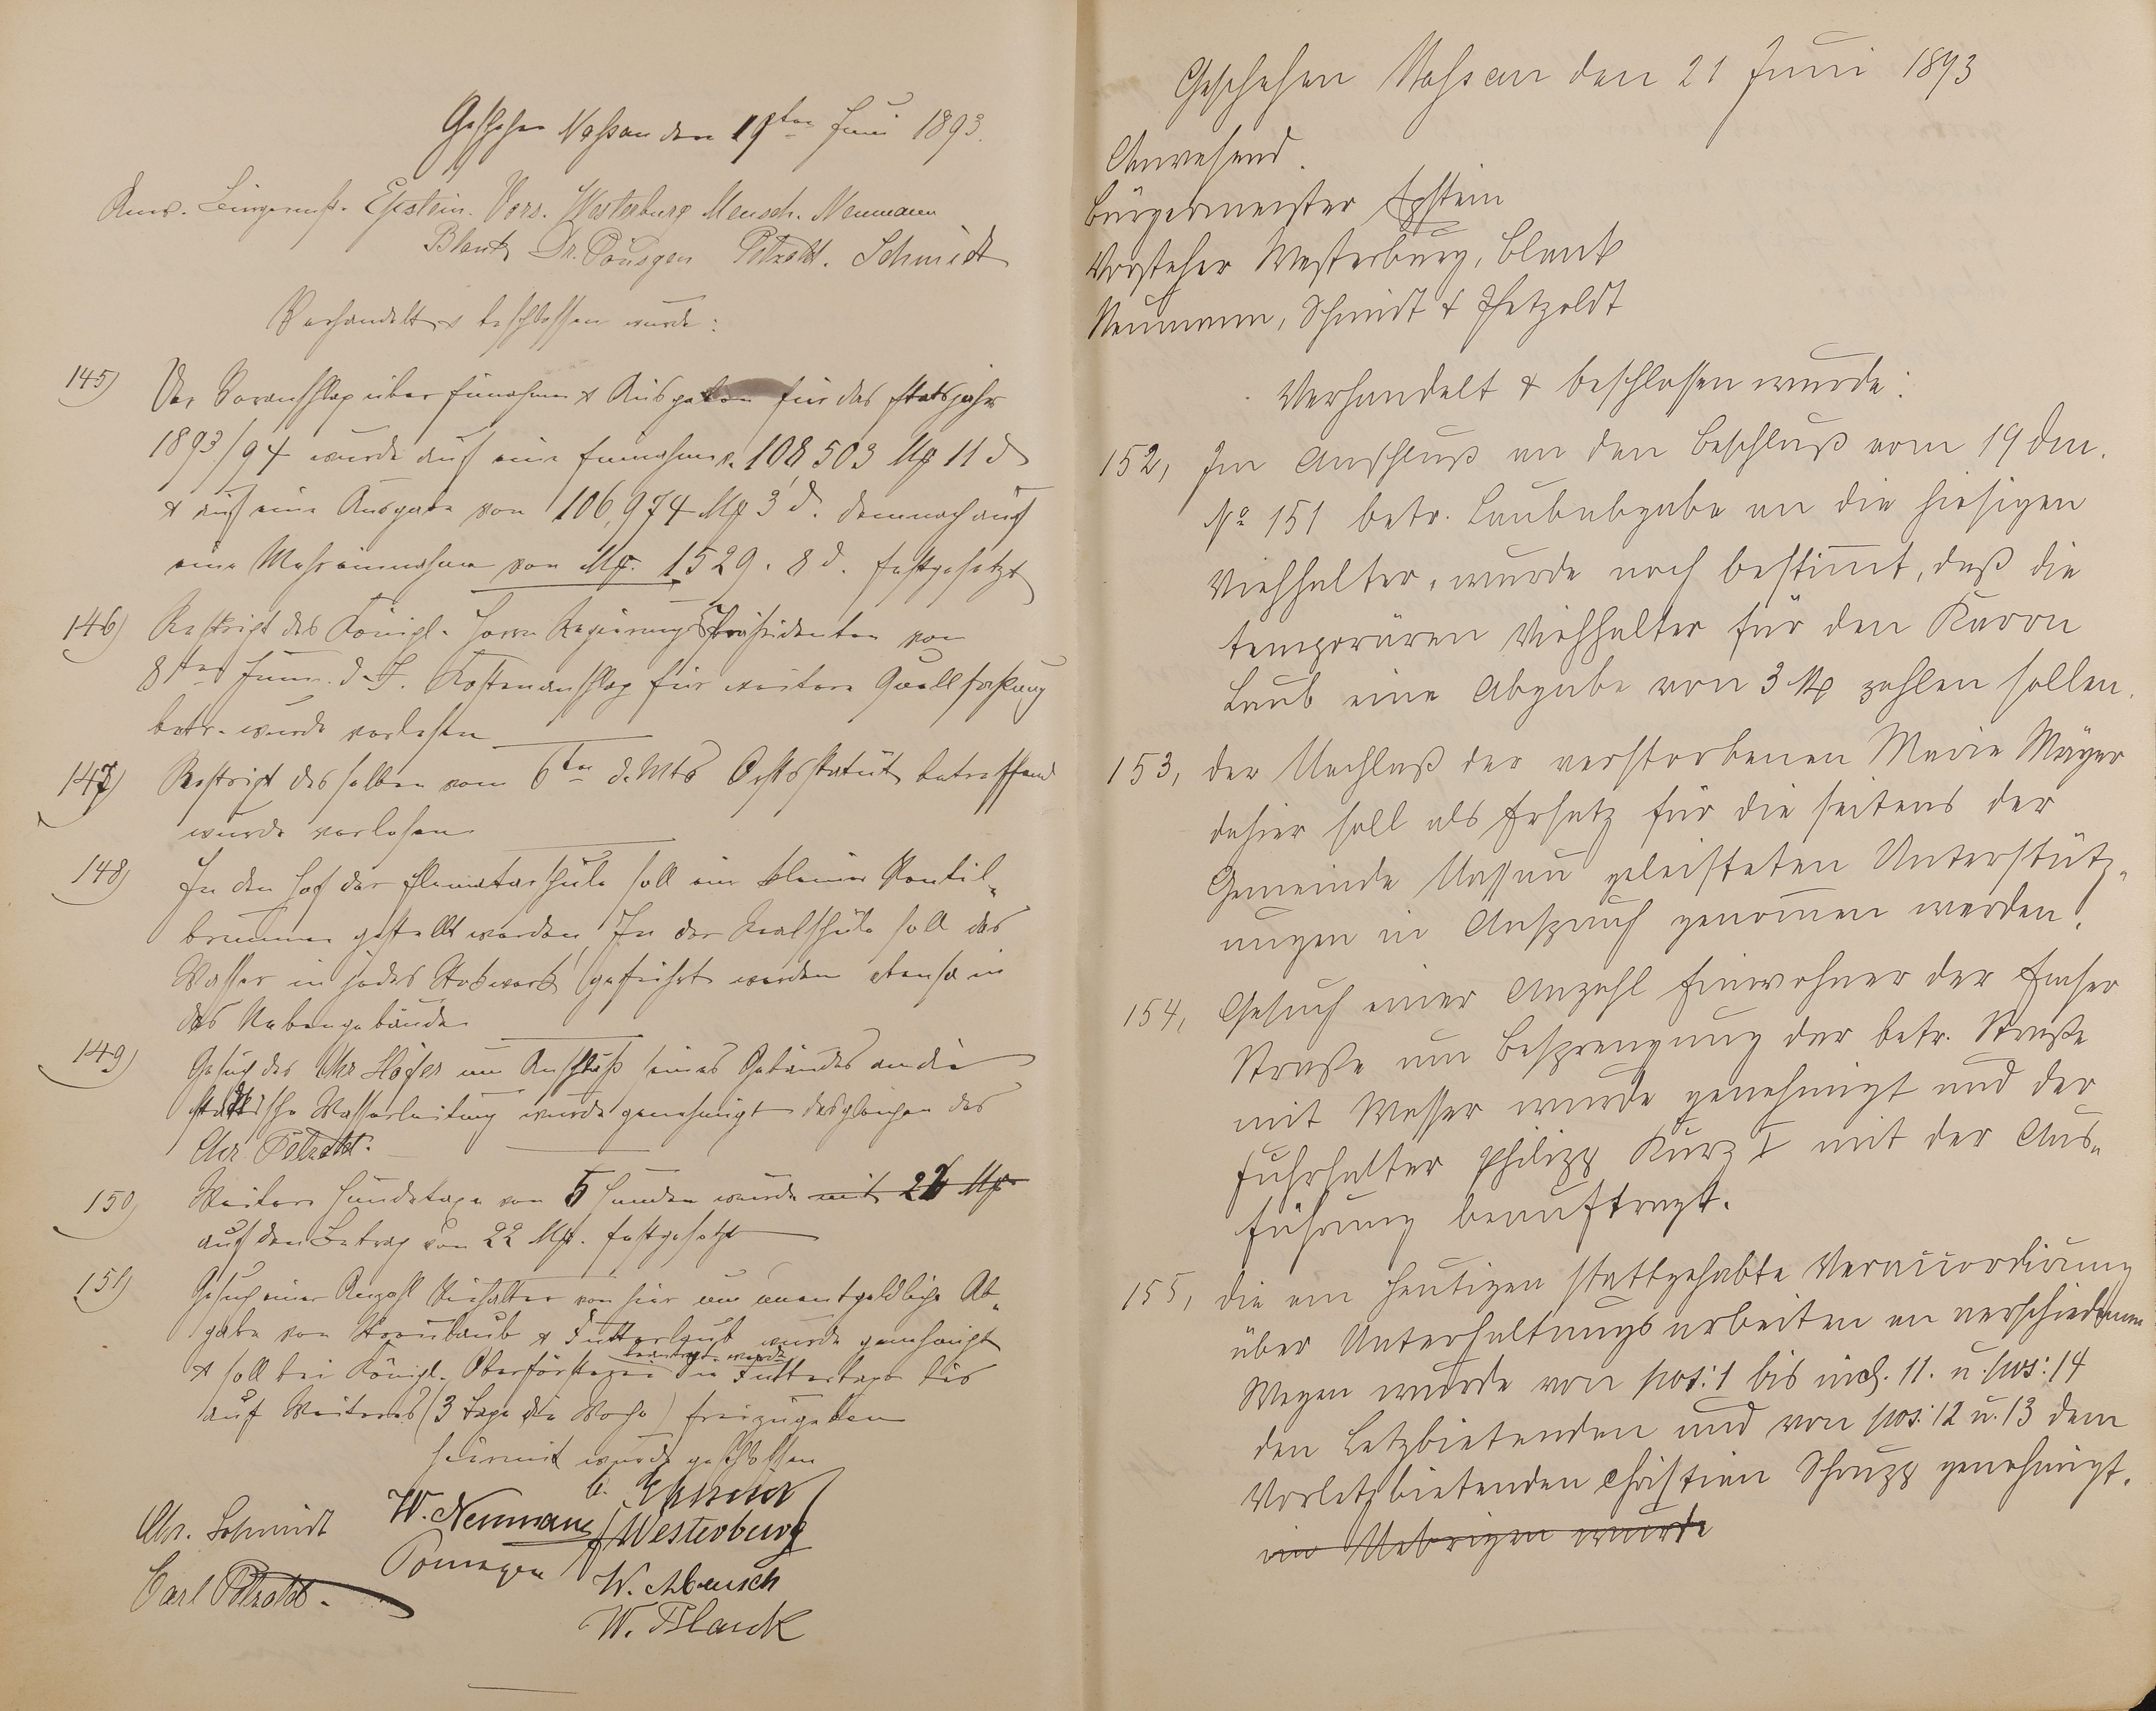 Geschehen Nassau den 19ten Juni 1893.
Anw. Bürgermstr. Epstein. Vors. Westerburg Mensch. Neumann
Blank Dr. Pönsgen Petzoldt. Schmidt
Verhandelt & beschlossen wurde:
145) Der Voranschlag über Einnahmen & Ausgaben für das Etatsjahr
1893/94 wurde auf eine Einnahme v. 108 503 Mk 11 d
& auf eine Ausgabe von 106,974 Mk 3 d. demnach auf
eine Mehreinnahme von Mk. 1529. 8 d. festgesetzt
146) Reskript des Königl. Herrn Regierungs Präsidenten von
8ten Juni d. J. Kostenanschlag für weitere Quellfassung
betr. wurde verlesen
147) Reskript desselben vom 6ten d. Mts Ortsstatut betreffend
wurde verlesen
148) In den Hof der Elementarschule soll ein kleiner Ventil-
brunnen gestellt werden, In der Realschule soll das
Wasser in jedes Stokwerk geführt werden ebenso in
das Nebengebäude
149) Gesuch des Chr Höfer um Anschluß seines Gebäudes an die
städtische Wasserleitung wurde genehmigt desgleichen des
Chr Petzoldt.
150) Weitere Hundetaxe von 5 Hunden wurde mit 22 Mk.
auf den Betrag von 22 Mk. festgesetzt
151) Gesuch einer Anzahl Viehhalter von hier um unentgeldliche Ab-
gabe von Streulaub & Futterlaub wurde genehmigt
beantragt werden
& soll bei Königl. Oberförsterei die Futtertage bis
auf Weiteres (3 Tage die Woche) freizugeben
hiermit wurde geschlossen
Chr. Schmidt W. Neumann Epstein
Westerburg
Carl Petzoldt. Pönsgen W. Mensch
W. Blank
Geschehen Nassau den 21 Juni 1893
Anwesend.
Bürgermeister Epstein
Vorsteher Westerburg, Blank
Neumann, Schmidt & Petzoldt
Verhandelt & beschlossen wurde:
152, Im Anschluß an den Beschluß vom 19 dM.
No 151 betr. Laubabgabe an die hiesigen
Viehhalter, wurde noch bestimmt, daß die
temporären Viehhalter für den Karrn
Laub eine Abgabe von 3 M zahlen sollen.
153, der Nachlaß der verstorbenen Marie Mäyer
dahier soll als Ersatz für die seitens der
Gemeinde Nassau geleisteten Unterstütz-
ungen in Anspruch genommen werden.
154, Gesuch einer Anzahl Einwohner der Emser
Straße um Besprengung der betr. Straße
mit Wasser wurde genehmigt und der
Fuhrhalter Philipp Kurz I mit der Aus-
führung beauftragt.
155, die am heutigen stattgehabte Veraccordirung
über Unterhaltungsarbeiten an verschiedenen
Wegen wurde von pos: 1 bis incl. 11. u. pos: 14
den Letzbietenden und von pos: 12 u. 13 dem
Vorletzbietenden Christian Schrupp genehmigt.
im Uebrigen wurde